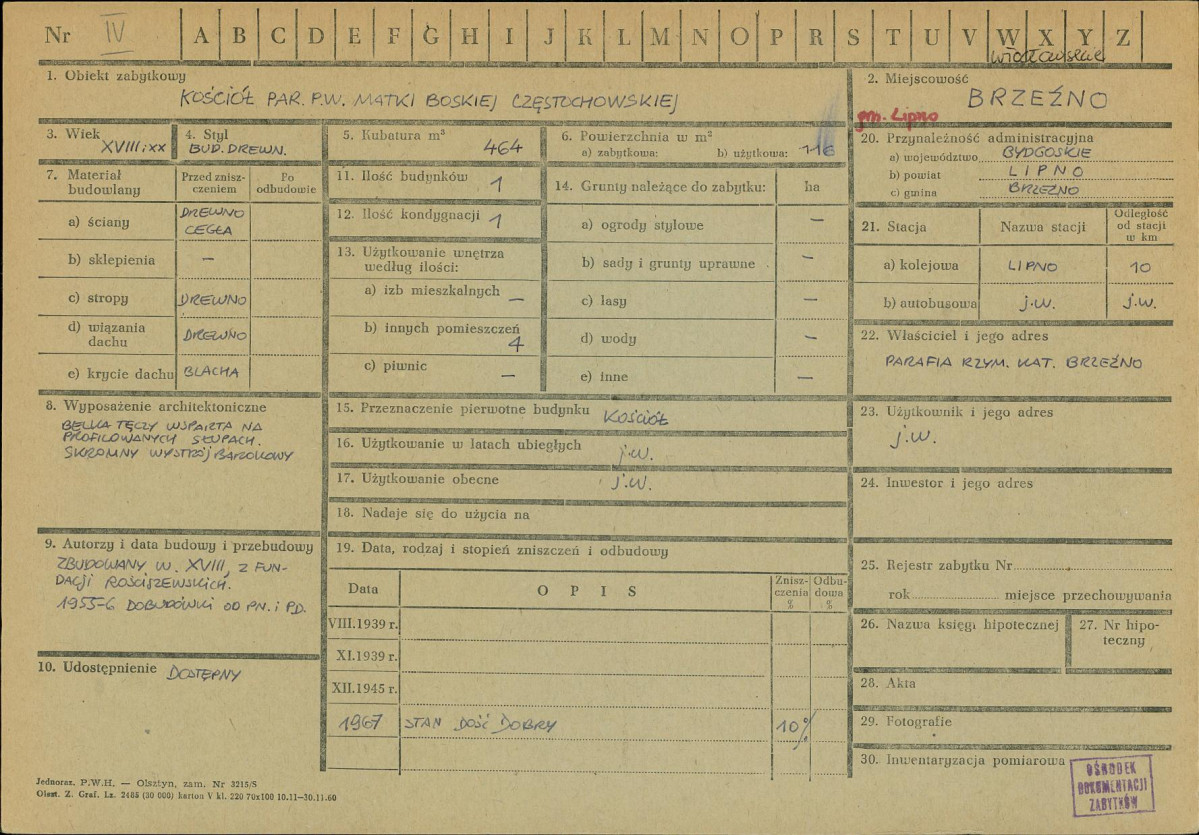 Nr IV A B C D E F G H I J K L M N O P R S T U V W X Y Z
włocławskie
1. Obiekt zabytkowy
KOŚCIÓŁ PAR. P.W. MATKI BOSKIEJ CZĘSTOCHOWSKIEJ
2. Miejscowość
BRZEŹNO
gm. Lipno
3. Wiek
XVIII i XX
4. Styl
BUD. DREWN.
5. Kubatura m³
464
6. Powierzchnia w m²
a) zabytkowa: b) użytkowa: 116
7. Materiał budowlany
Przed zniszczeniem
Po odbudowie
a) ściany DREWNO
CEGŁA
b) sklepienia —
c) stropy DREWNO
d) wiązania dachu DREWNO
e) krycie dachu BLACHA
8. Wyposażenie architektoniczne
BELKA TĘCZY WSPARTA NA
PROFILOWANYCH SŁUPACH.
SKROMNY WYSTRÓJ BAROKOWY
9. Autorzy i data budowy i przebudowy
ZBUDOWANY W. XVIII, Z FUN-
DACJI ROŚCISZEWSKICH.
1955-6 DOBUDÓWKI OD PN. i PD.
10. Udostępnienie DOSTĘPNY
11. Ilość budynków 1
12. Ilość kondygnacji 1
13. Użytkowanie wnętrza
według ilości:
a) izb mieszkalnych —
b) innych pomieszczeń
4
c) piwnic —
14. Grunty należące do zabytku: ha
a) ogrody stylowe —
b) sady i grunty uprawne —
c) lasy —
d) wody —
e) inne —
15. Przeznaczenie pierwotne budynku KOŚCIÓŁ
16. Użytkowanie w latach ubiegłych j.w.
17. Użytkowanie obecne j.w.
18. Nadaje się do użycia na
19. Data, rodzaj i stopień zniszczeń i odbudowy
Data OPIS Zniszczenia % Odbudowa %
VIII.1939 r.
XI.1939 r.
XII.1945 r.
1967 STAN DOŚĆ DOBRY 10%
20. Przynależność administracyjna
a) województwo BYDGOSKIE
b) powiat LIPNO
c) gmina BRZEŹNO
21. Stacja Nazwa stacji Odległość od stacji w km
a) kolejowa LIPNO 10
b) autobusowa j.w. j.w.
22. Właściciel i jego adres
PARAFIA RZYM. KAT. BRZEŹNO
23. Użytkownik i jego adres
j.w.
24. Inwestor i jego adres
25. Rejestr zabytku Nr
rok miejsce przechowywania
26. Nazwa księgi hipotecznej
27. Nr hipoteczny
28. Akta
29. Fotografie
30. Inwentaryzacja pomiarowa
OŚRODEK
DOKUMENTACJI
ZABYTKÓW
Jednoraz. P.W.H. — Olsztyn, zam. Nr 3215/S
Olszt. Z. Graf. Lz. 2485 (30 000) karton V kl. 220 70x100 10.11—30.11.60